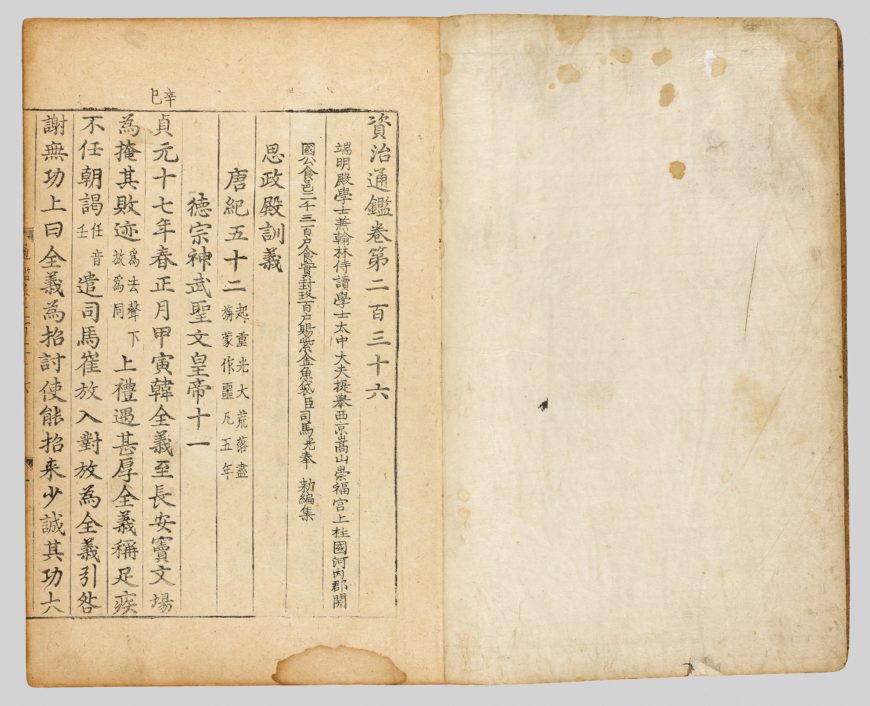 資治通鑑卷第二百三十六
端明殿學士兼翰林侍讀學士太中大夫提擧西京嵩山崇福宮上柱國河內郡開
國公食邑二千三百户食實封玖百户賜紫金魚袋臣司馬光奉 勑編集
思政殿訓義
唐紀五十二起重光大荒落盡旃蒙作噩凡五年
德宗神武聖文皇帝十一
辛巳
貞元十七年春正月甲寅韓全義至長安竇文場
為掩其敗迹爲去聲下故爲同上禮遇甚厚全義稱足疾
不任朝謁任音壬遣司馬崔放入對放為全義引咎
謝無功上曰全義為招討使能招来少誠其功大